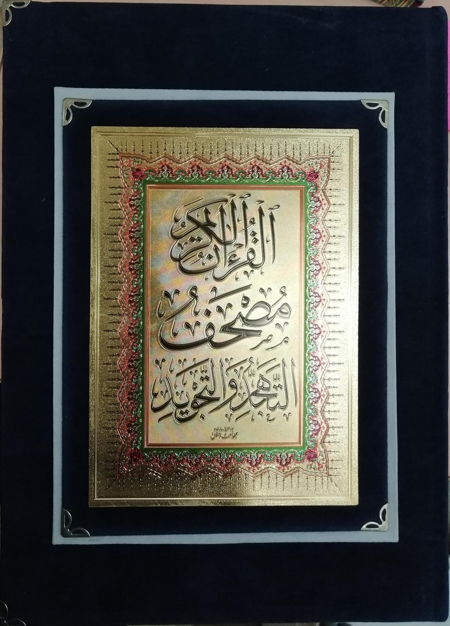 القرءان الكريم
مصحف
التهجد والتجويد